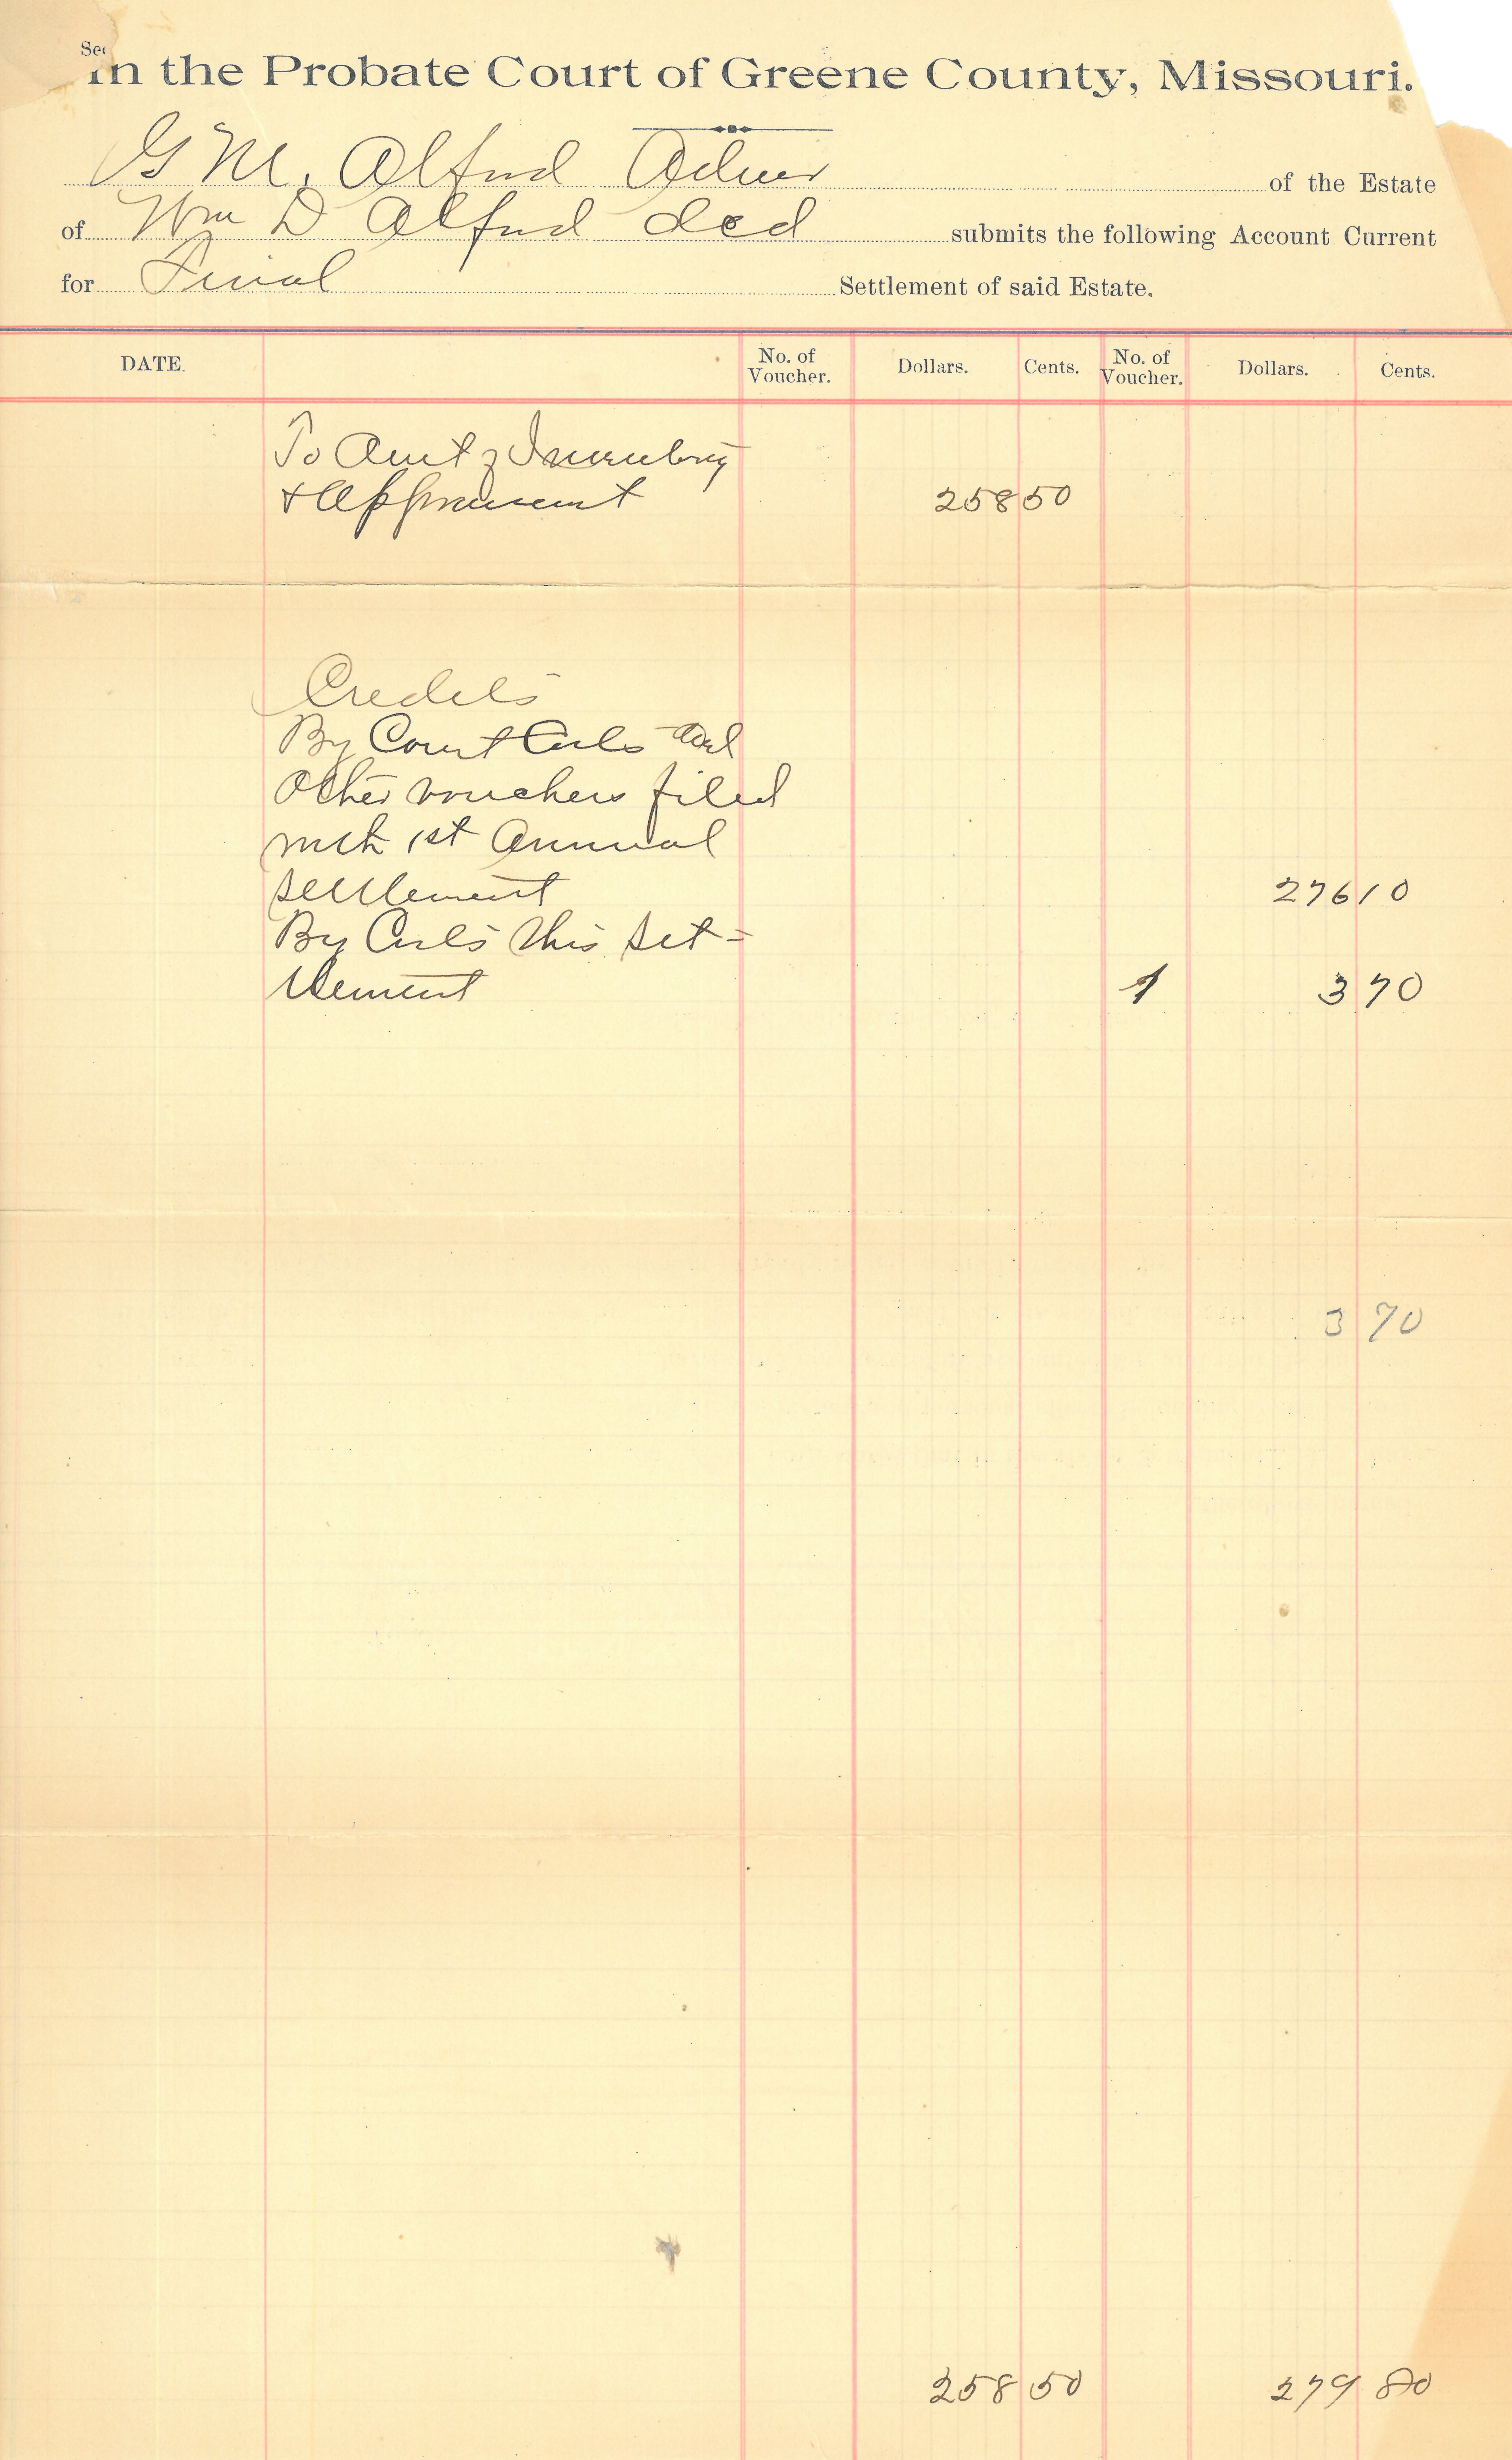 Sec
In the Probate Court of Greene County, Missouri.
G M. Alfred Admr of the Estate
of Wm D Alfred decd submits the following Account Current
for Final Settlement of said Estate.
DATE. No. of Voucher. Dollars. Cents. No. of Voucher. Dollars. Cents.
To Amt of Inventory
& Appraisment 258 50
Credits
By Court Costs and
Other vouchers filed
with 1st Annual
settlement 276 10
By Costs this set=
tlement 1 3 70
3 70
258 50 279 80